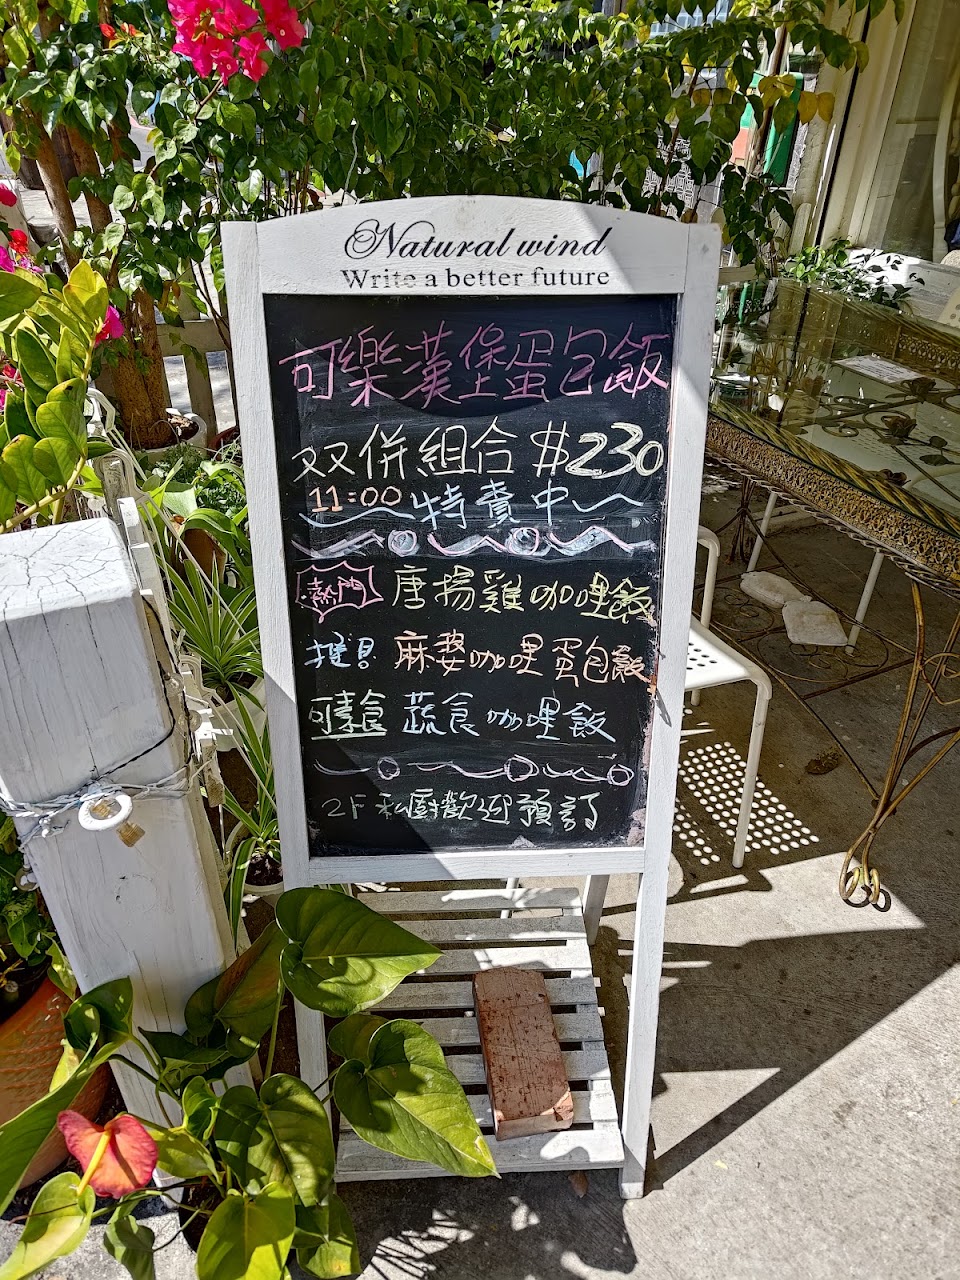 Natural wind
Write a better future
可樂漢堡蛋包飯
双併組合 $230
11:00 特賣中
熱門 唐揚雞咖哩飯
推見 麻婆咖哩蛋包飯
可素食 蔬食咖哩飯
2F 私廚歡迎預訂